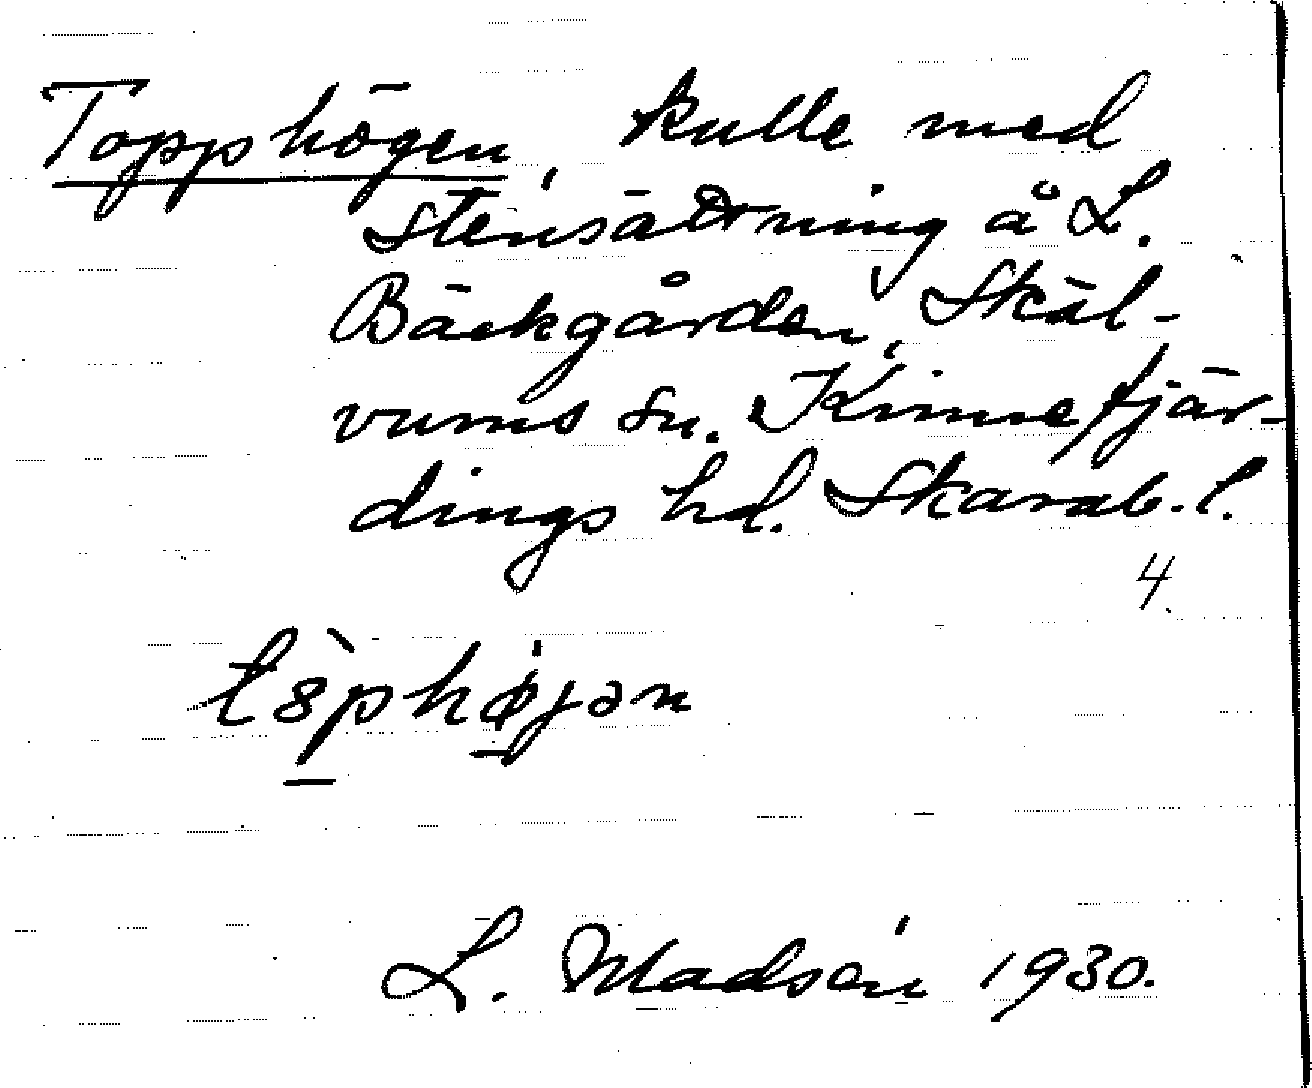 Topphögen, kulle med
stensättning å L.
Bäckgården, Skäl-
vums sn. Kinnefjär-
dings hd. Skarab. l.
4
L. Madsén 1930.